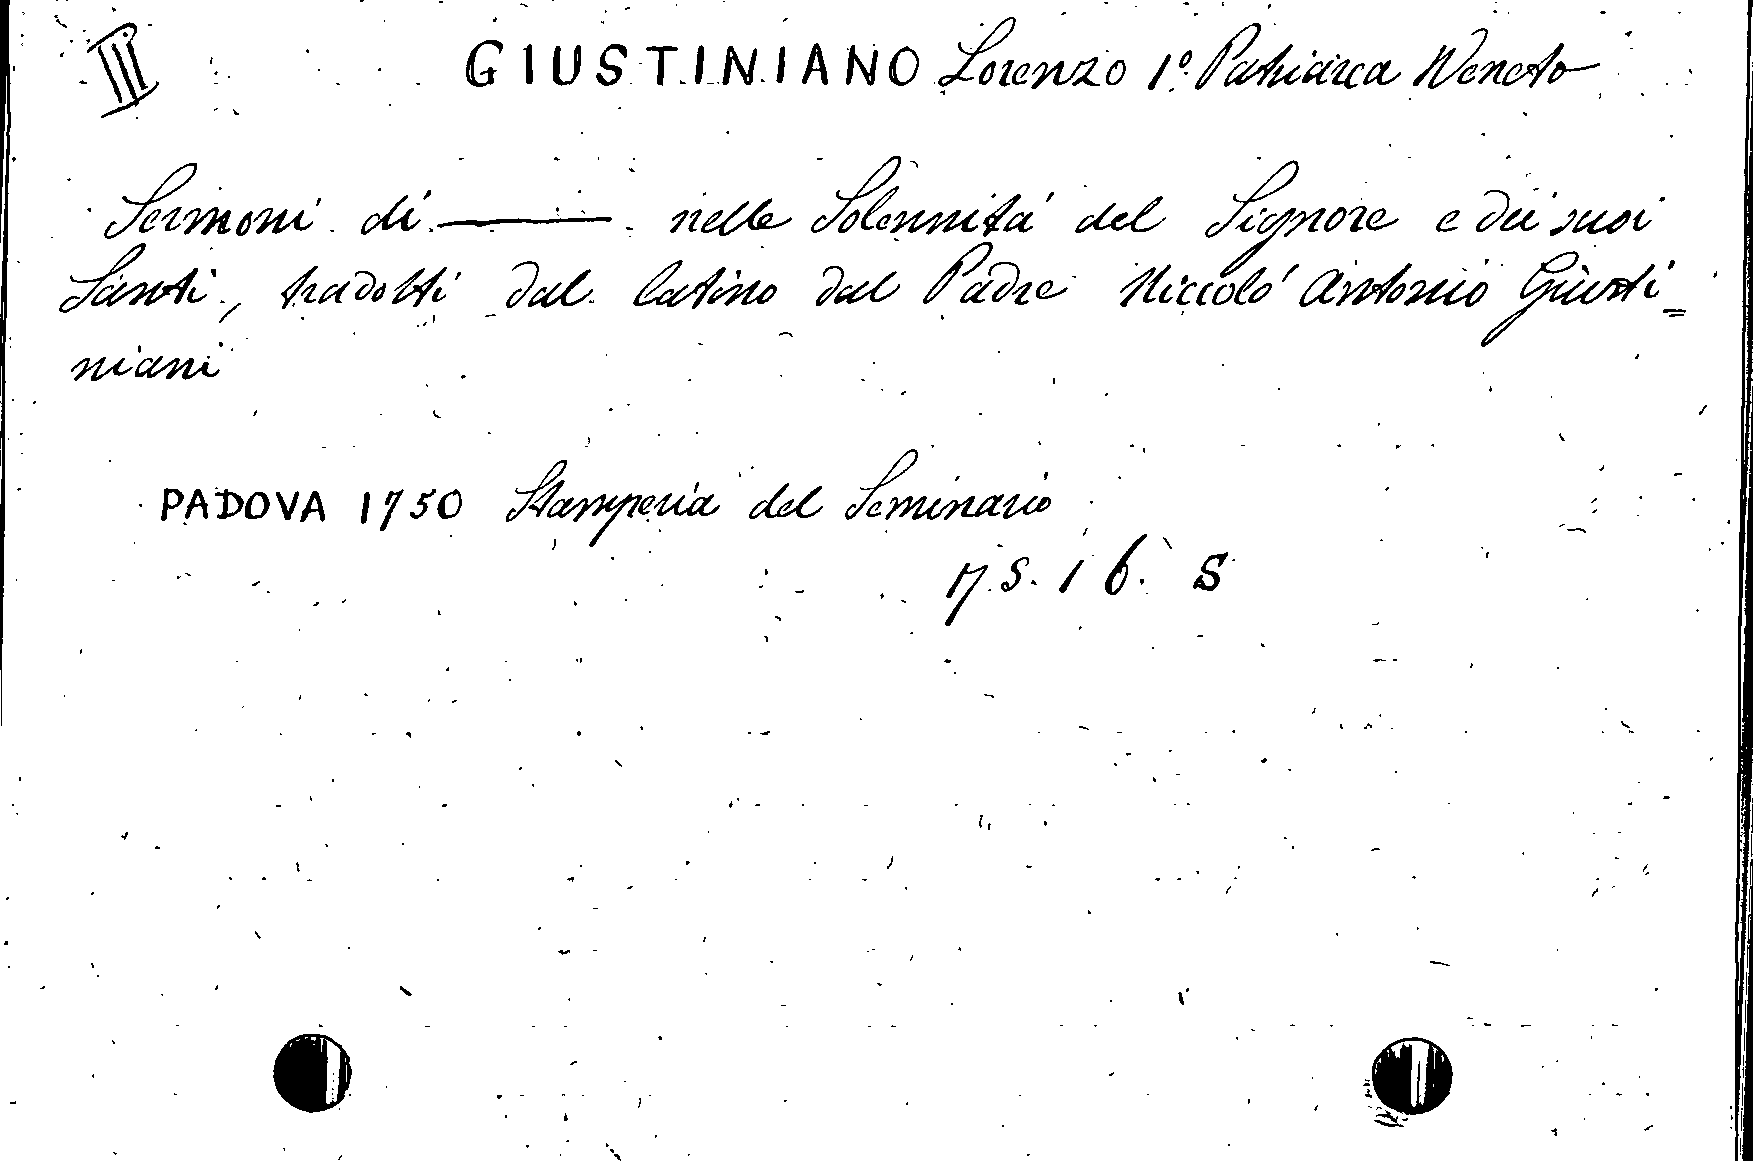 III GIUSTINIANO Lorenzo 1º Patriarca Veneto
Sermoni di ——— nelle Solennitá del Signore e dei suoi
Santi, tradotti dal latino dal Padre Niccoló Antonio Giusti=
niani
PADOVA 1750 Stamperia del Seminario
17 S. 16. S